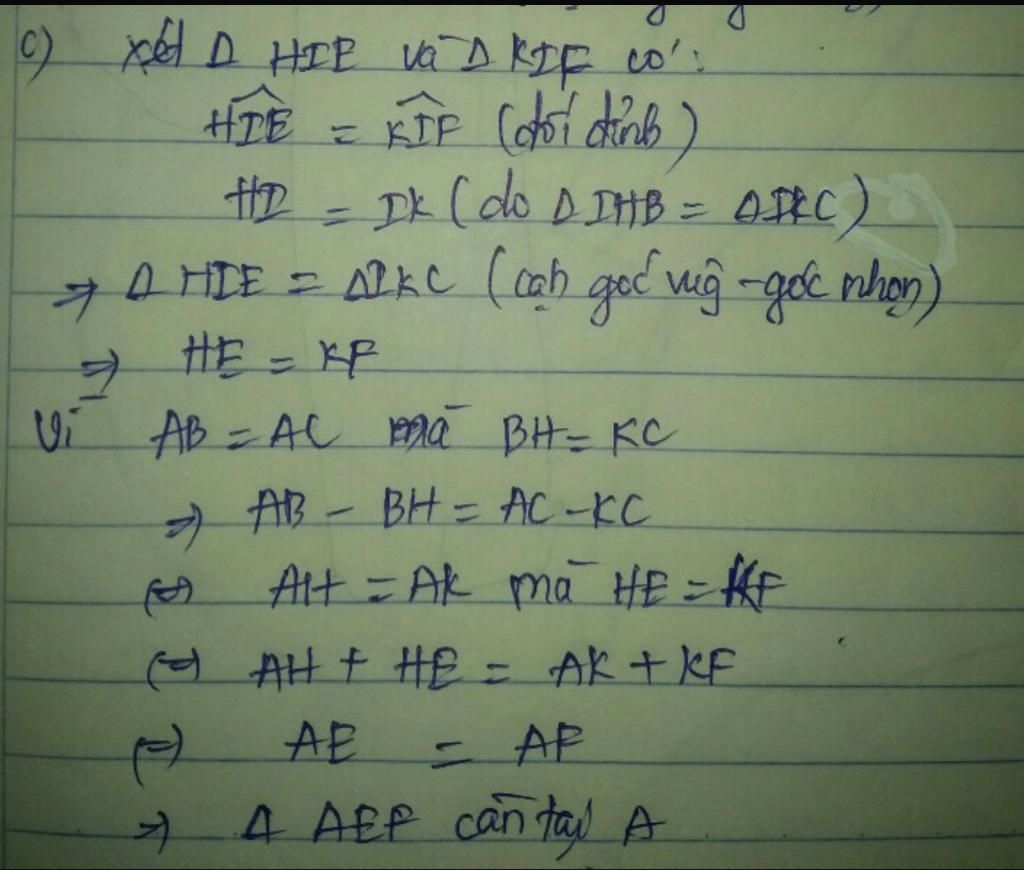 c) xét Δ HIE và Δ KIF có:
HIE = KIF (đối đỉnh)
HI = IK (do Δ IHB = ΔIKC)
=> Δ HIE = ΔIKC (cạh góc vug - góc nhọn)
=> HE = KF
Vì AB = AC mà BH = KC
=> AB - BH = AC - KC
(=) AH = AK mà HE = KF
(=) AH + HE = AK + KF
(=) AE = AF
=> Δ AEF cân tại A